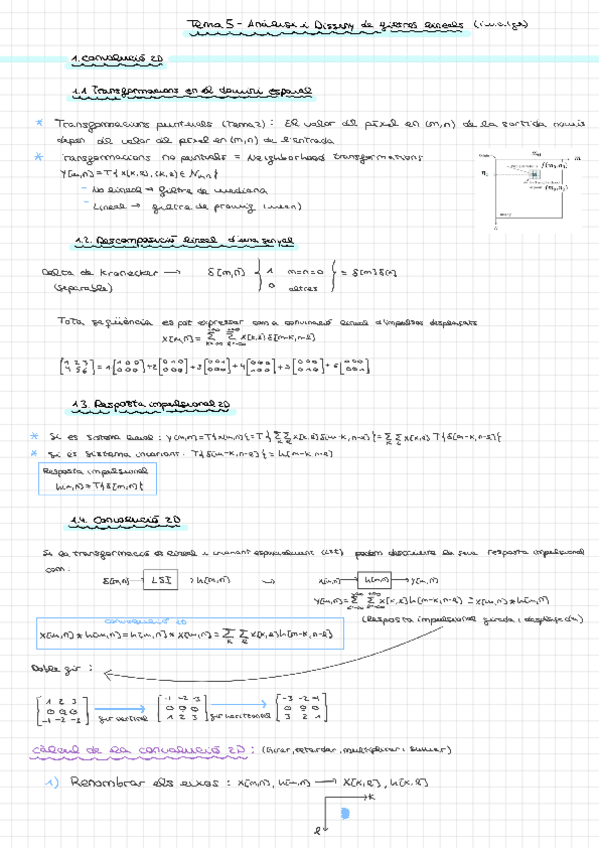 Tema 5 - Anàlisi i Disseny de filtres lineals (i.v.e.lge)
1. Convolució 2D
1.1 Transformacions en el domini espaial
* Transformacions puntuals (Tema 2): El valor del píxel en (m,n) de la sortida només
depèn del valor del píxel en (m,n) de l'entrada
* Transformacions no puntuals = Neighborhood transformations
Y[m,n] = T{x[k,l], (k,l) ∈ Nm,n}
- No lineal → filtre de mediana
- Lineal → filtre de promig (mean)
1.2. Descomposició lineal d'una senyal
Delta de Kronecker → δ[m,n] { 1 m=n=0 } = δ[m]δ[n]
(separable) 0 altres
Tota seqüència es pot expressar com a convinació lineal d'impulsos desplaçats
x[m,n] = Σ Σ x[k,l] δ[m-k,n-l]
[1 2 3; 4 5 6] = 1[1 0 0; 0 0 0] + 2[0 1 0; 0 0 0] + 3[0 0 1; 0 0 0] + 4[0 0 0; 1 0 0] + 5[0 0 0; 0 1 0] + 6[0 0 0; 0 0 1]
1.3. Resposta impulsional 2D
* Si es sistema lineal: Y(m,n) = T{x(m,n)} = T{ΣΣ x[k,l] δ[m-k,n-l]} = ΣΣ x[k,l] T{δ[m-k,n-l]}
* Si es sistema invariant: T{δ[m-k,n-l]} = h[m-k,n-l]
Resposta impulsional
h(m,n) = T{δ[m,n]}
1.4. Convolució 2D
Si la transformació és lineal i invariant espaialment (LSI) podem descriure la seva resposta impulsional
com:
δ[m,n] → LSI → h[m,n] → x[m,n] → h[m,n] → y[m,n]
Y[m,n] = Σ Σ x[k,l] h[m-k,n-l] = x[m,n] * h[m,n]
(Resposta impulsional girada i desplaçada)
Convolució 2D
x[m,n] * h[m,n] = h[m,n] * x[m,n] = Σ Σ x[k,l] h[m-k,n-l]
Doble gir:
[1 2 3; 0 0 0; -1 -2 -3] → gir vertical [-1 -2 -3; 0 0 0; 1 2 3] → gir horitzontal [-3 -2 -1; 0 0 0; 3 2 1]
Càlcul de la convolució 2D: (Girar, retardar, multiplicar i sumar)
1) Renombrar els eixos: x[m,n], h[m,n] → x[k,l], h[k,l]
k
l